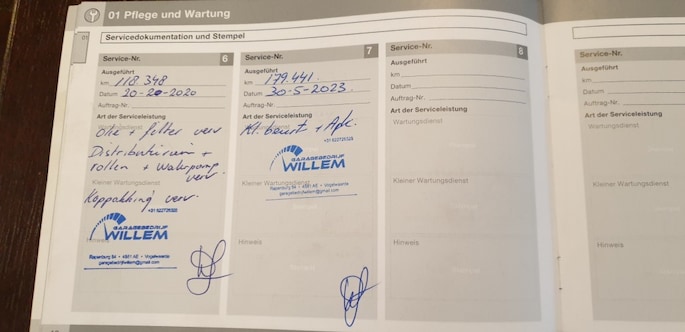 01 Pflege und Wartung
01
Servicedokumentation und Stempel
Service-Nr. 6
Ausgeführt
km 118.348
Datum 20-2-2020
Auftrag-Nr.
Art der Serviceleistung
Wartungsdienst
Olie + filter verv
Distributieriem +
rollen + Waterpomp
verv.
Kleiner Wartungsdienst
Koppakking verv.
GARAGEBEDRIJF
WILLEM
Rapenburg 54 • 4351 AE • Vrouwenpolder
garagebedrijfwillem@gmail.com
Hinweis
Service-Nr. 7
Ausgeführt
km 179.441
Datum 30-5-2023
Auftrag-Nr.
Art der Serviceleistung
Wartungsdienst
Kl. beurt + Apk.
GARAGEBEDRIJF
WILLEM
Kleiner Wartungsdienst
garagebedrijfwillem@gmail.com
Hinweis
Service-Nr. 8
Ausgeführt
km
Datum
Auftrag-Nr.
Art der Serviceleistung
Wartungsdienst
Kleiner Wartungsdienst
Hinweis
Service-Nr.
Ausgeführt
km
Datum
Auftrag-Nr.
Art der Serviceleistung
Wartungsdienst
Kleiner Wartungsdienst
Hinweis